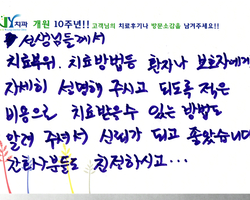 JY치과 개원 10주년!! 고객님의 치료후기나 방문소감을 남겨주세요!!
선생님들께서
치료부위. 치료방법등 환자나 보호자에게
자세히 설명해 주시고 되도록 적은
비용으로 치료받을수 있는 방법도
알려 주셔서 신뢰가 되고 좋았습니다
간호사분들도 친절하시고...